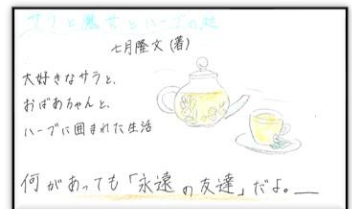 サラと魔女とハーブの庭
七月隆文(著)
大好きなサラと、
おばあちゃんと、
ハーブに囲まれた生活
何があっても「永遠の友達」だよ。